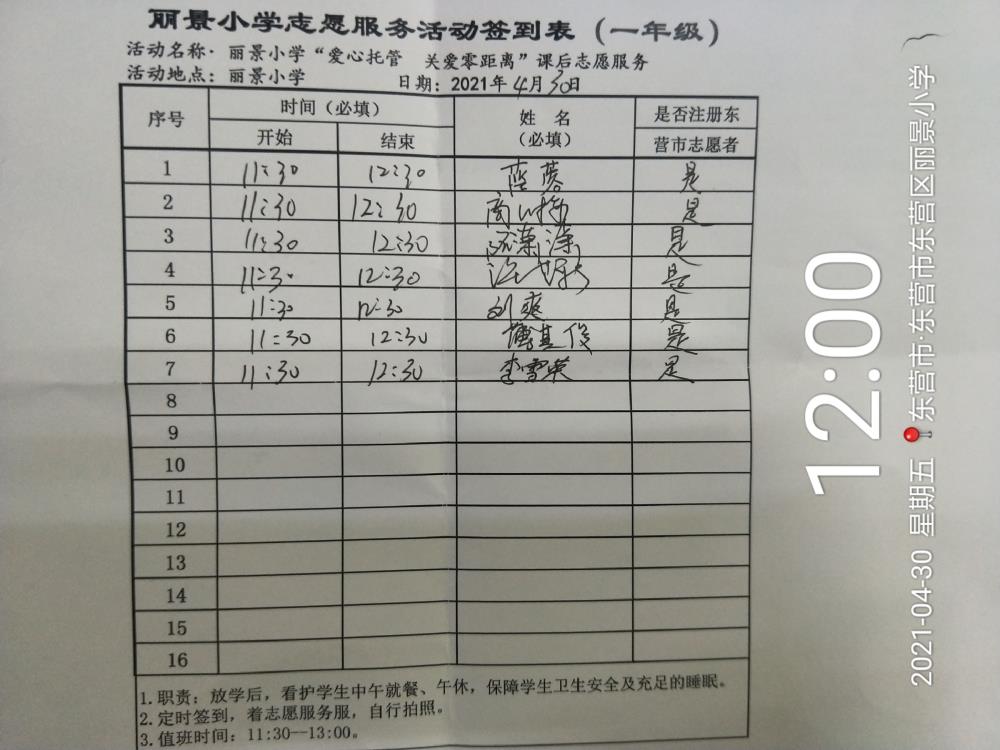 丽景小学志愿服务活动签到表（一年级）
活动名称：丽景小学“爱心托管 关爱零距离”课后志愿服务
活动地点：丽景小学 日期：2021年4月30日
序号 时间（必填） 姓名（必填） 是否注册东营市志愿者
开始 结束
1 11:30 12:30 是
2 11:30 12:30 是
3 11:30 12:30 是
4 11:30 12:30 是
5 11:30 12:30 刘爽 是
6 11:30 12:30 是
7 11:30 12:30 李雪英 是
8
9
10
11
12
13
14
15
16
1.职责：放学后，看护学生中午就餐、午休，保障学生卫生安全及充足的睡眠。
2.定时签到，着志愿服务服，自行拍照。
3.值班时间：11:30--13:00。
12:00
2021-04-30 星期五 东营市·东营市东营区丽景小学